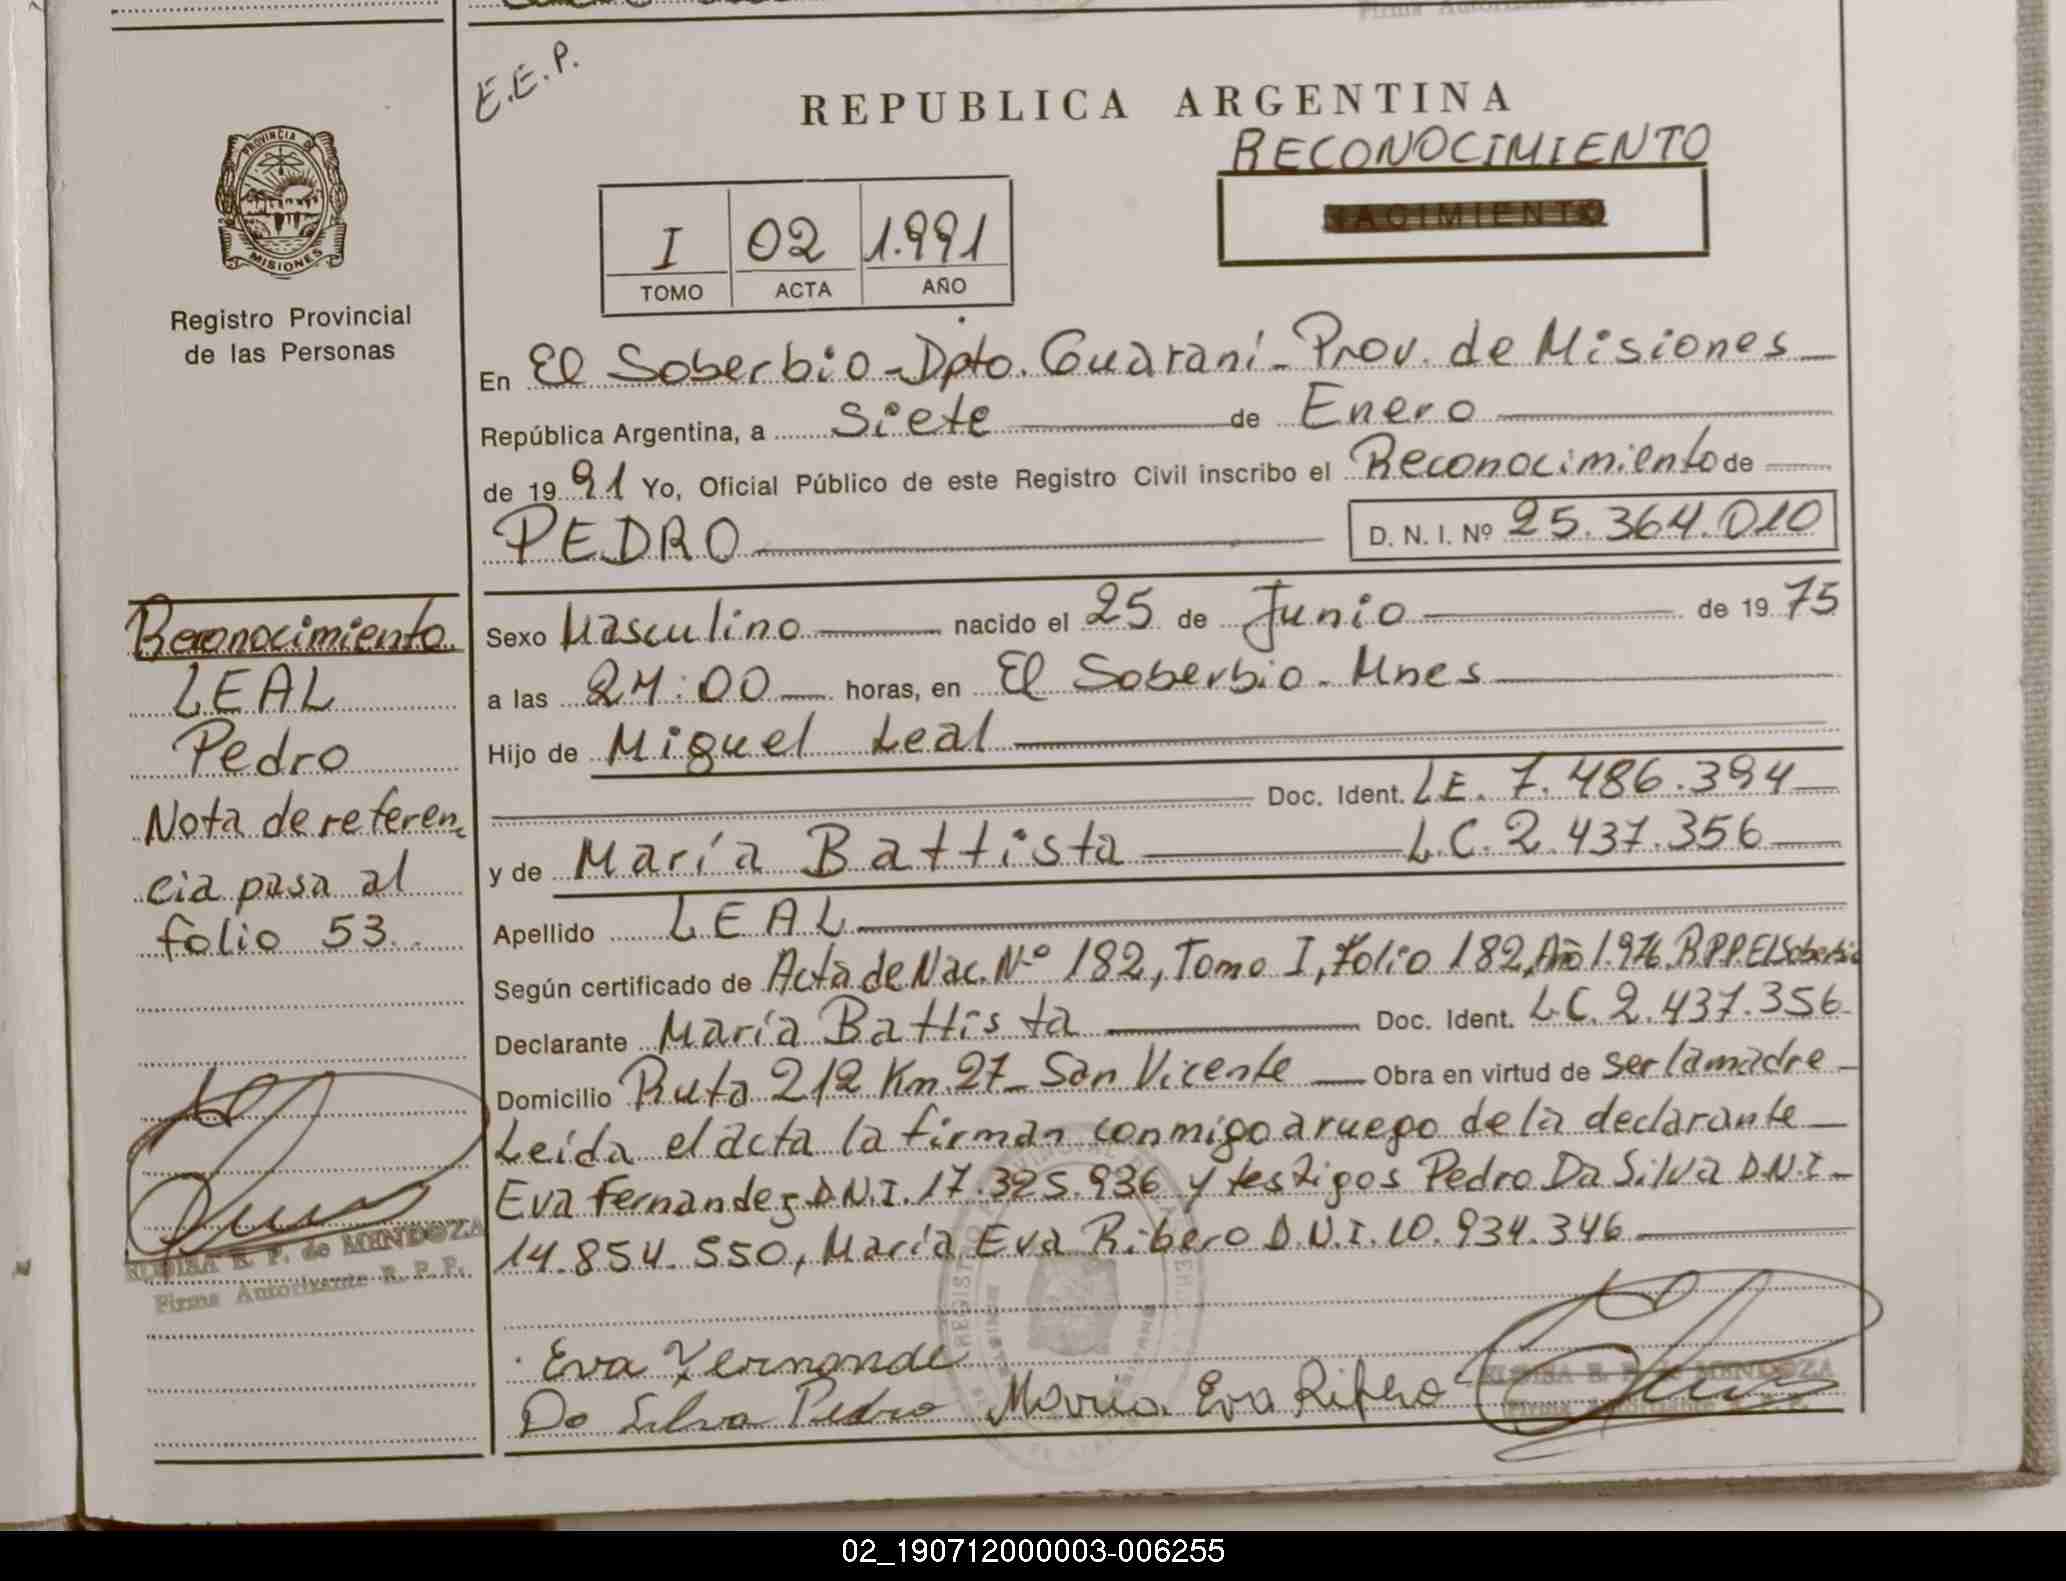 E.E.P.
REPUBLICA ARGENTINA
RECONOCIMIENTO
NACIMIENTO
PROVINCIA DE
MISIONES
I 02 1.991
TOMO ACTA AÑO
Registro Provincial
de las Personas
En El Soberbio - Dpto. Guaraní - Prov. de Misiones
República Argentina, a Siete de Enero
de 1991 Yo, Oficial Público de este Registro Civil inscribo el Reconocimiento de
PEDRO D. N. I. Nº 25.364.010
Sexo Masculino nacido el 25 de Junio de 1975
a las 24:00 horas, en El Soberbio - Mnes
Hijo de Miguel Leal
Doc. Ident. L.E. 7.486.394
y de María Battista L.C. 2.437.356
Apellido LEAL
Según certificado de Acta de Nac. Nº 182, Tomo I, Folio 182, Año 1.976. R.P.P. El Soberbio
Declarante María Battista Doc. Ident. L.C. 2.437.356
Domicilio Ruta 212 Km. 27 - San Vicente Obra en virtud de ser la madre
Leída el acta la firman conmigo a ruego de la declarante
Eva Fernandez D.N.I. 17.325.936 y testigos Pedro Da Silva D.N.I
14.854.550, María Eva Ribero D.N.I. 10.934.346
Eva Fernande
Da Silva Pedro María Eva Ribero
ELOISA E. P. de MENDOZA
Firma Autorizante R. P. P.
Reconocimiento
LEAL
Pedro
Nota de referen
cia pasa al
folio 53.
ELOISA E. P. de MENDOZA
Firma Autorizante R. P. P.
02_190712000003-006255